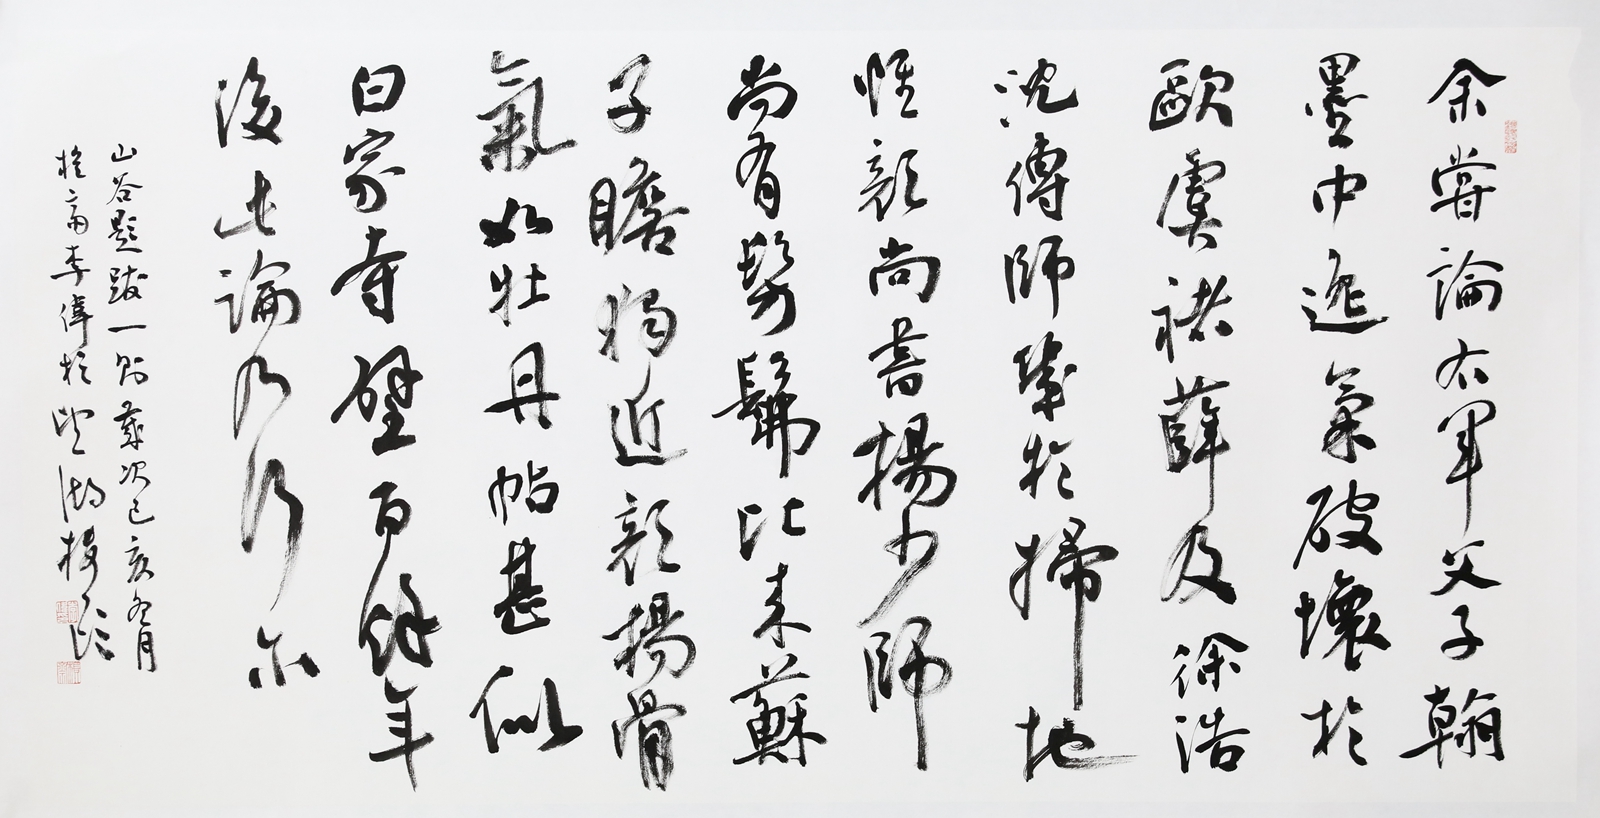 余嘗論右軍父子翰
墨中逸氣破壞於
歐虞褚薛及徐浩
沈傳師幾於掃地
惟顏尚書揚少師
尚有髣髴比來蘇
子瞻獨近顏揚骨
氣如牡丹帖甚似
白家寺壁百餘年
後此論乃行尔
山谷題跋一則歲次己亥冬月
李偉於望湖樓